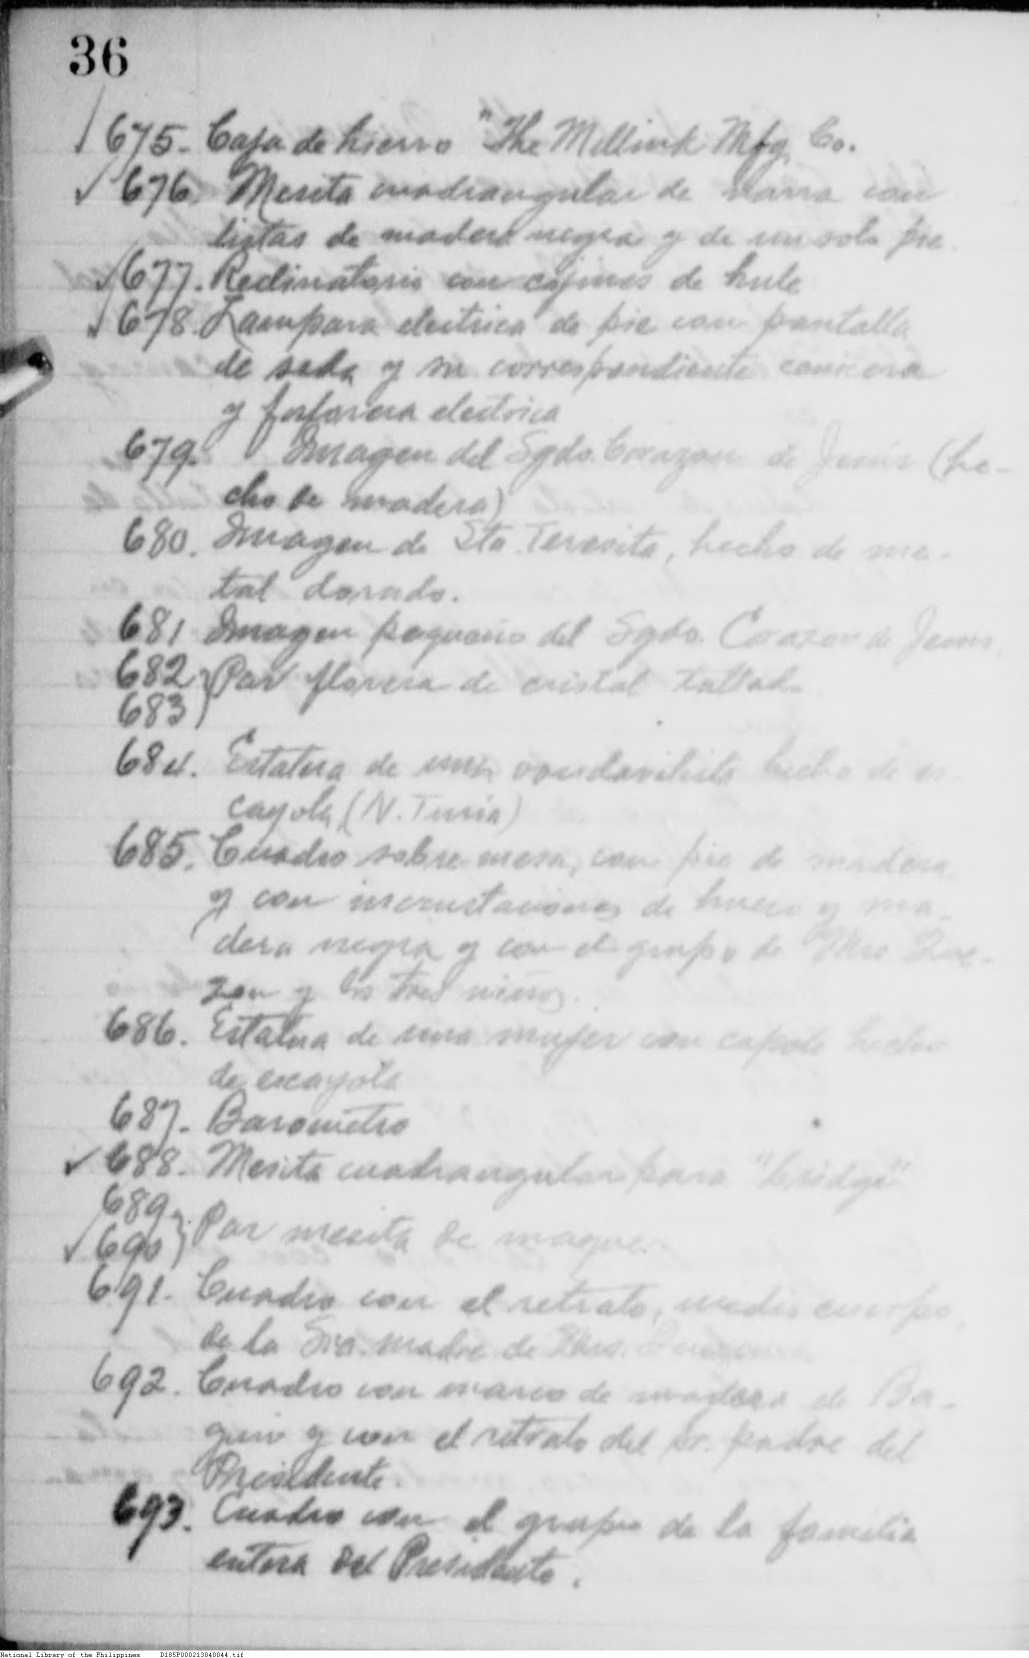 36
675. Caja de hierro "The Millink Mfg. Co.
676. Mesita cuadrangular de narra con
listas de madera negra y de un solo pie
677. Reclinatorio con cojines de hule
678. Lampara electrica de pie con pantalla
de seda y su correspondiente cenicera
y fosforera electrica
679. Imagen del Sgdo. Corazon de Jesús (he-
cho de madera)
680. Imagen de Sta. Teresita, hecho de me-
tal dorado.
681 Imagen pequeño del Sgdo. Corazon de Jesus.
682 } Par florera de cristal tallado
683
684. Estatua de una hecho de es-
cayola (N. Turia)
685. Cuadro sobre mesa, con pie de madera
y con incrustaciones de hueso y ma-
dera negra y con el grupo de Mrs Que-
zon y los tres niños.
686. Estatua de una mujer con capote hecho
de escayola
687. Barometro
688. Mesita cuadrangular para "bridge"
689. } Par mesita de maque.
690
691. Cuadro con el retrato, medio cuerpo,
de la Sra. madre de Mrs. Quezon.
692. Cuadro con marco de madera de Ba-
guio y con el retrato del Sr. padre del
Presidente.
693. Cuadro con el grupo de la familia
entera del Presidente.
National Library of the Philippines D185P000213040044.tif